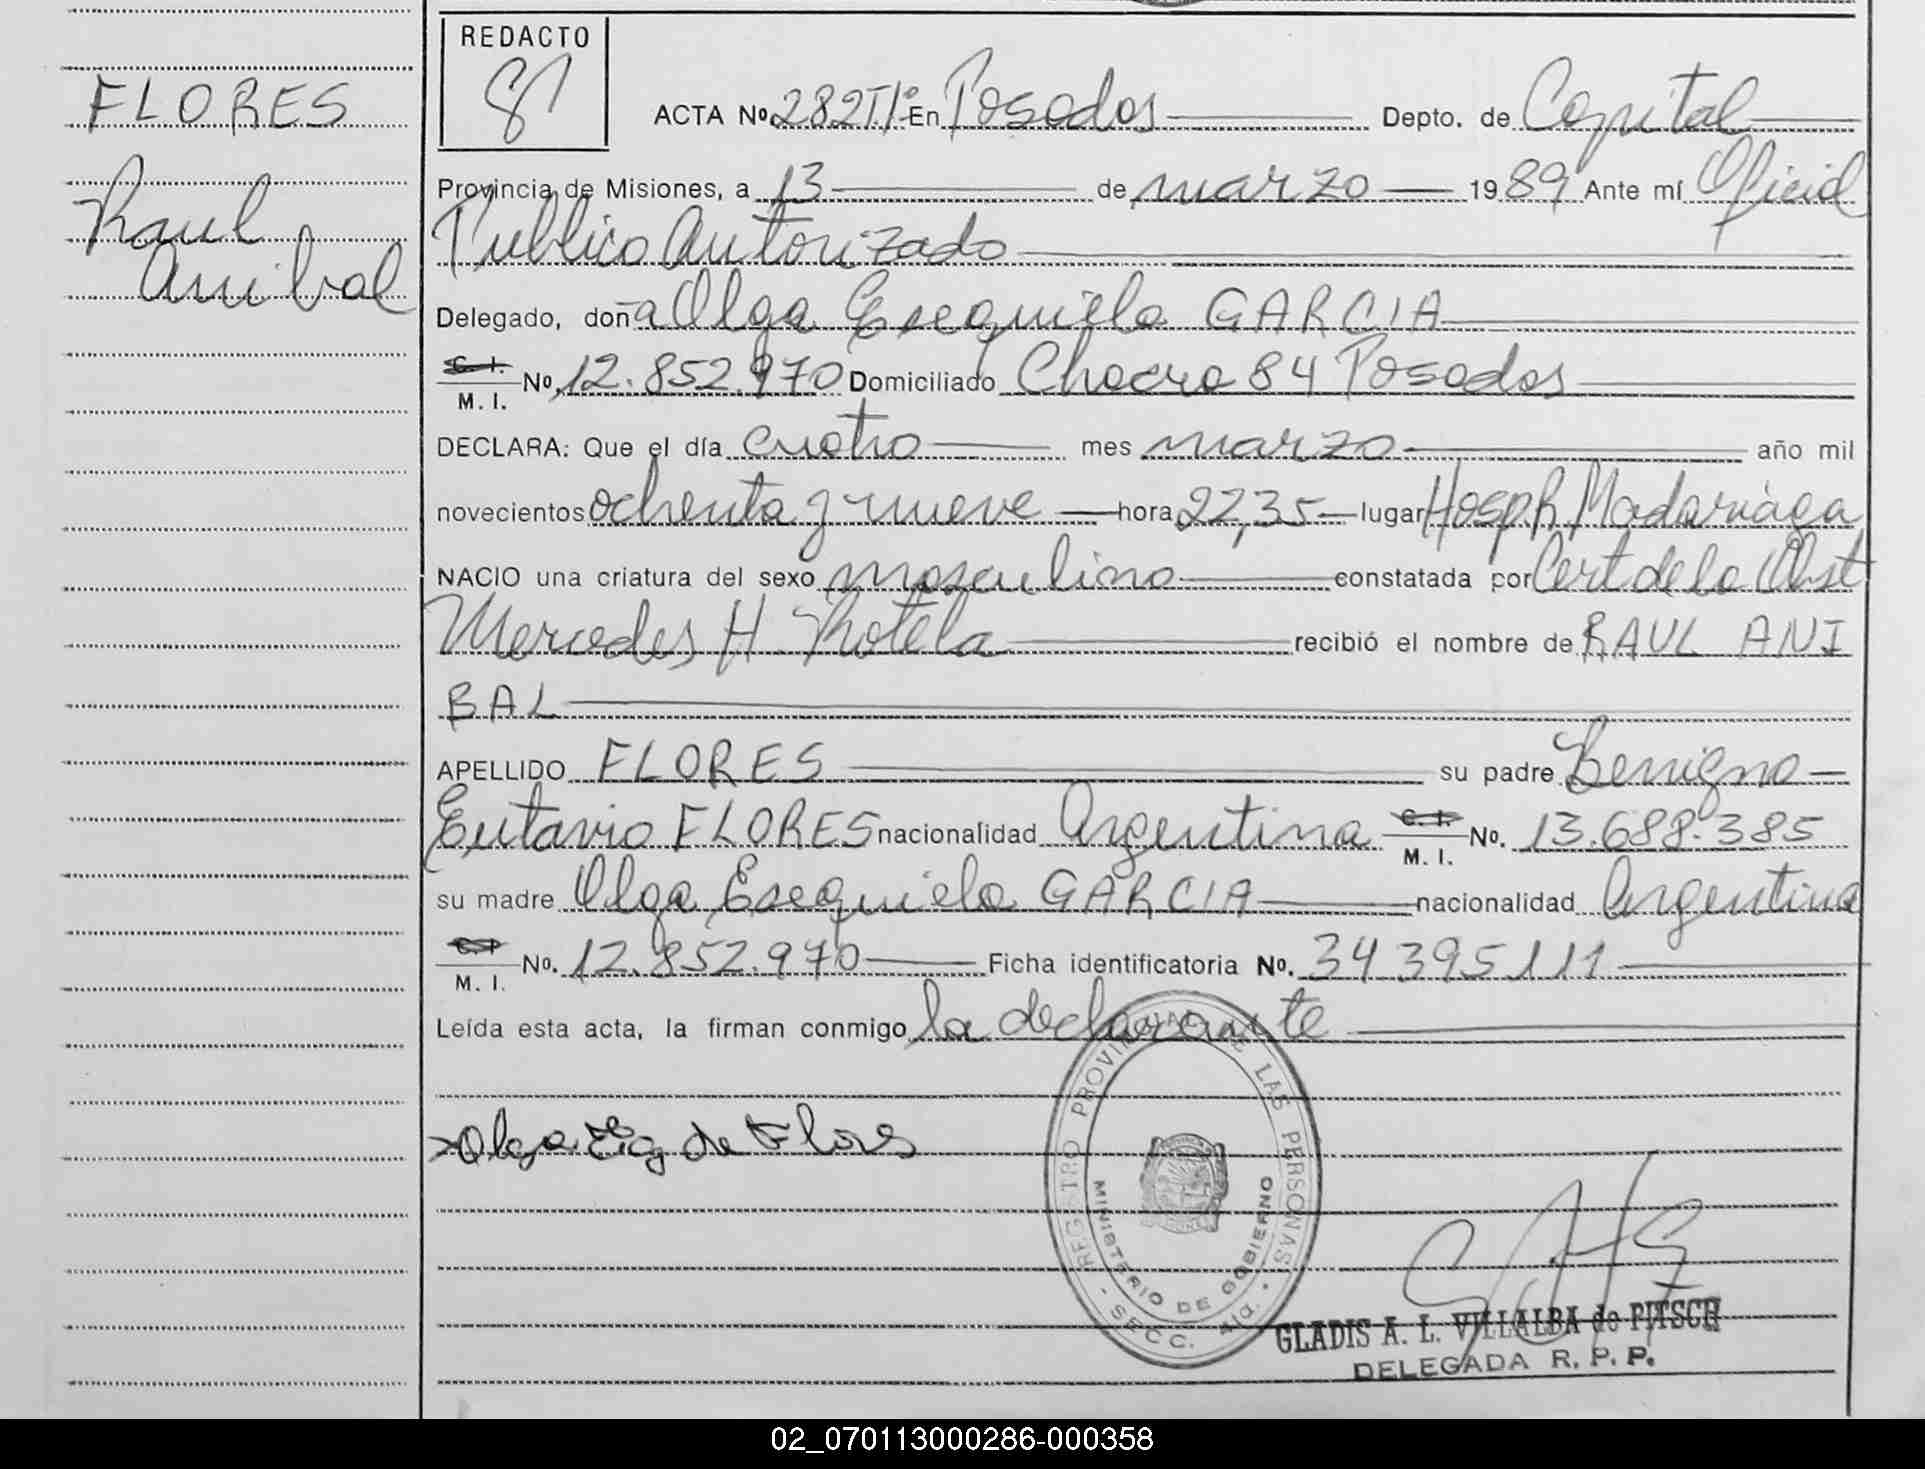 FLORES
Raul
Anibal
REDACTO
81
ACTA Nº 282 T1º En Posadas Depto. de Capital
Provincia de Misiones, a 13 de marzo 1989 Ante mí Oficial
Publico Autorizado
Delegado, doña Olga Esequiela GARCIA
C. I. M. I. Nº 12.852.970 Domiciliado Chacra 84 Posadas
DECLARA: Que el día cuatro mes marzo año mil
novecientos ochenta y nueve hora 22,35 lugar Hosp. R. Madariaga
NACIO una criatura del sexo masculino constatada por Cert de la Obst
Mercedes H. Rotela recibió el nombre de RAUL ANI
BAL
APELLIDO FLORES su padre Benigno
Eutavio FLORES nacionalidad Argentina C. I. M. I. No. 13.688.385
su madre Olga Esequiela GARCIA nacionalidad Argentina
C. I. M. I. No. 12.852.970 Ficha identificatoria No. 34395111
Leída esta acta, la firman conmigo la declarante
Olga de Flores
REGISTRO PROVINCIAL DE LAS PERSONAS
MINISTERIO DE GOBIERNO
SECC. 4ta.
GLADIS A. L. VILLALBA de PITSCH
DELEGADA R. P. P.
02_070113000286-000358